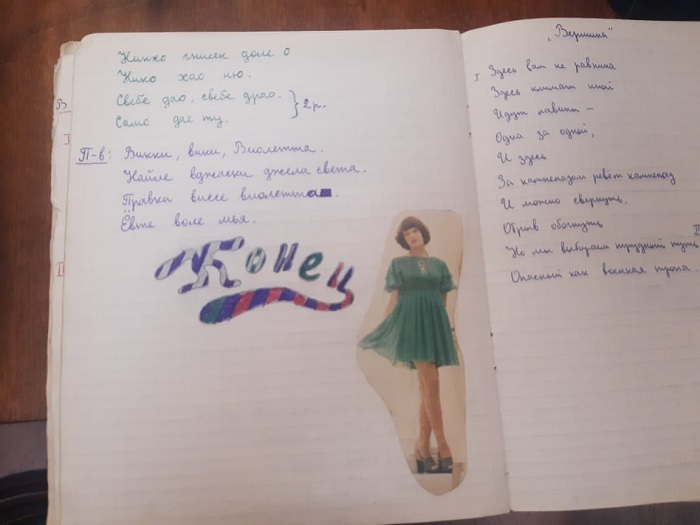 Нинхо гнисен доле О
Нико хао ню.
Свебе дао, свебе драо. } 2 р.
Само дае ту.
П-в: Викки, вики, Виолетта.
Найле вджлежи джела света.
Правка внесе виолетта
Ёвте воле мья.
Конец
В
I
I
„Вершина"
I Здесь вам не равнина
Здесь климат иной
Идут лавины —
Одна за одной,
И здесь
За камнепадом ревет камнепад
И можно свернуть,
Обрыв обогнуть
Но мы выбираем трудный путь
Опасный как военная тропа.
II